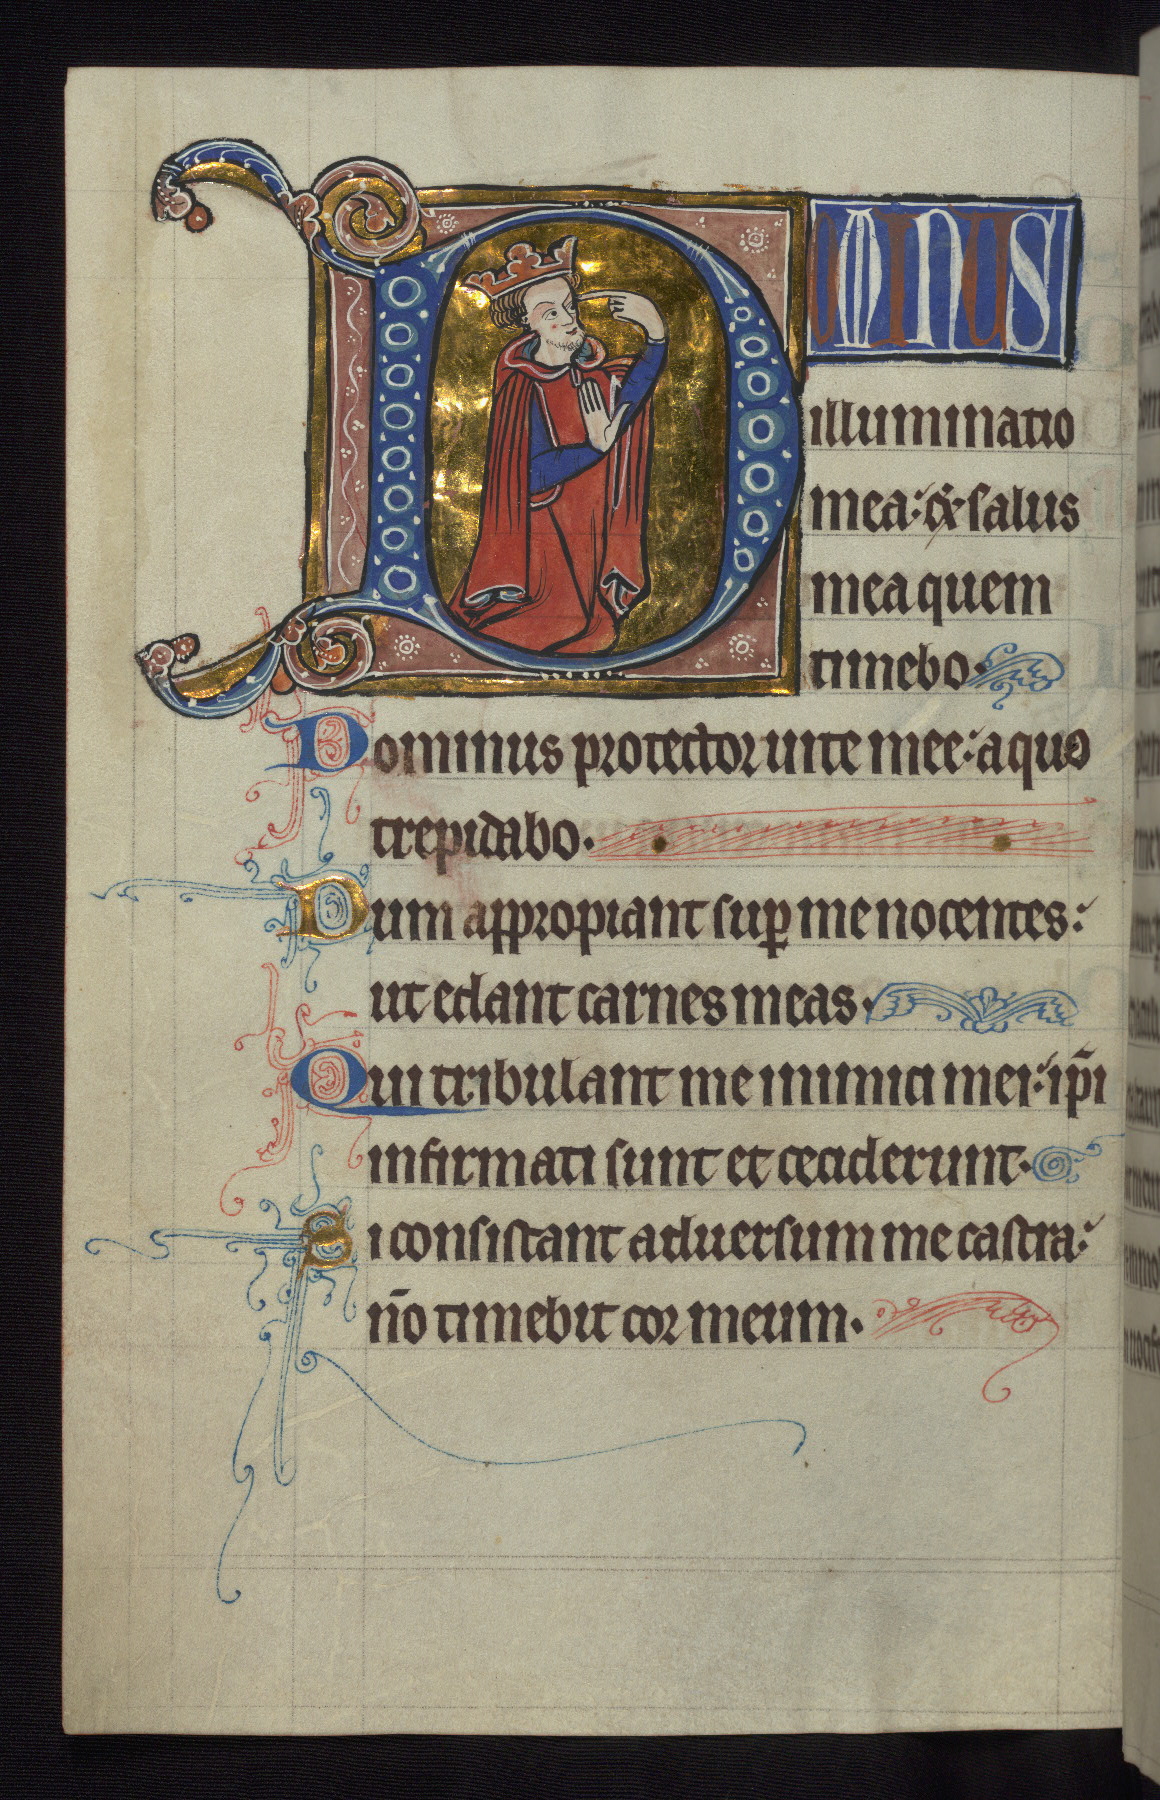 DOMINUS
illuminatio
mea: & salus
mea quem
timebo.
Dominus protector uite mee: a quo
trepidabo.
Dum appropiant sup̄ me nocentes:
ut edant carnes meas.
Qui tribulant me inimici mei: ip̄i
infirmati sunt et ceciderunt.
Si consistant aduersum me castra:
n̄o timebit cor meum.